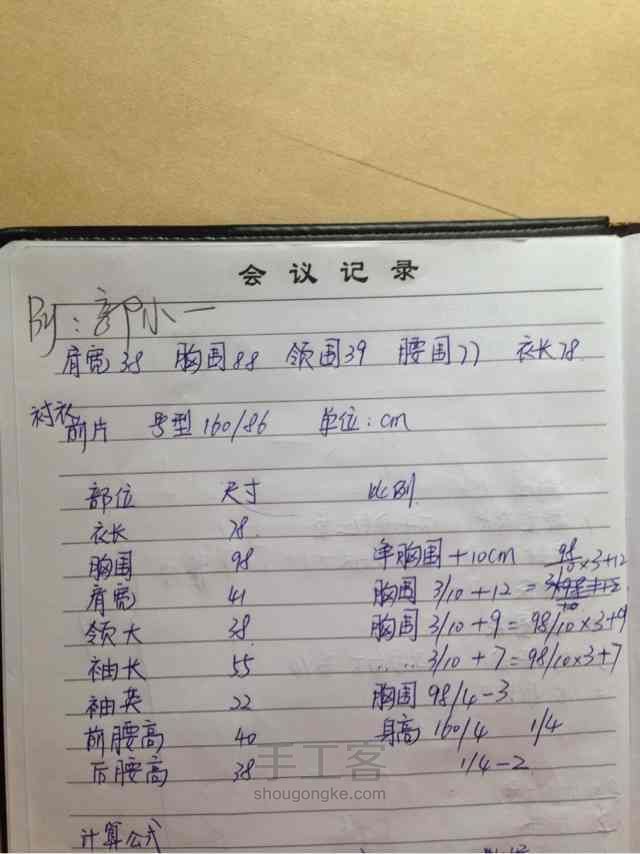 会议记录
By: 郭小一
肩宽38 胸围88 领围39 腰围77 衣长78
衬衣
前片 号型160/86 单位:cm
部位 尺寸 比例
衣长 78
胸围 98 净胸围+10cm 98/10×3+12
肩宽 41 胸围 3/10+12 =
领大 38 胸围 3/10+9=98/10×3+9
袖长 55 ‥ ‥ 3/10+7=98/10×3+7
袖英 22 胸围 98/4-3
前腰高 40 身高 160/4 1/4
后腰高 38 1/4-2
手工客
shougongke.com
计算公式